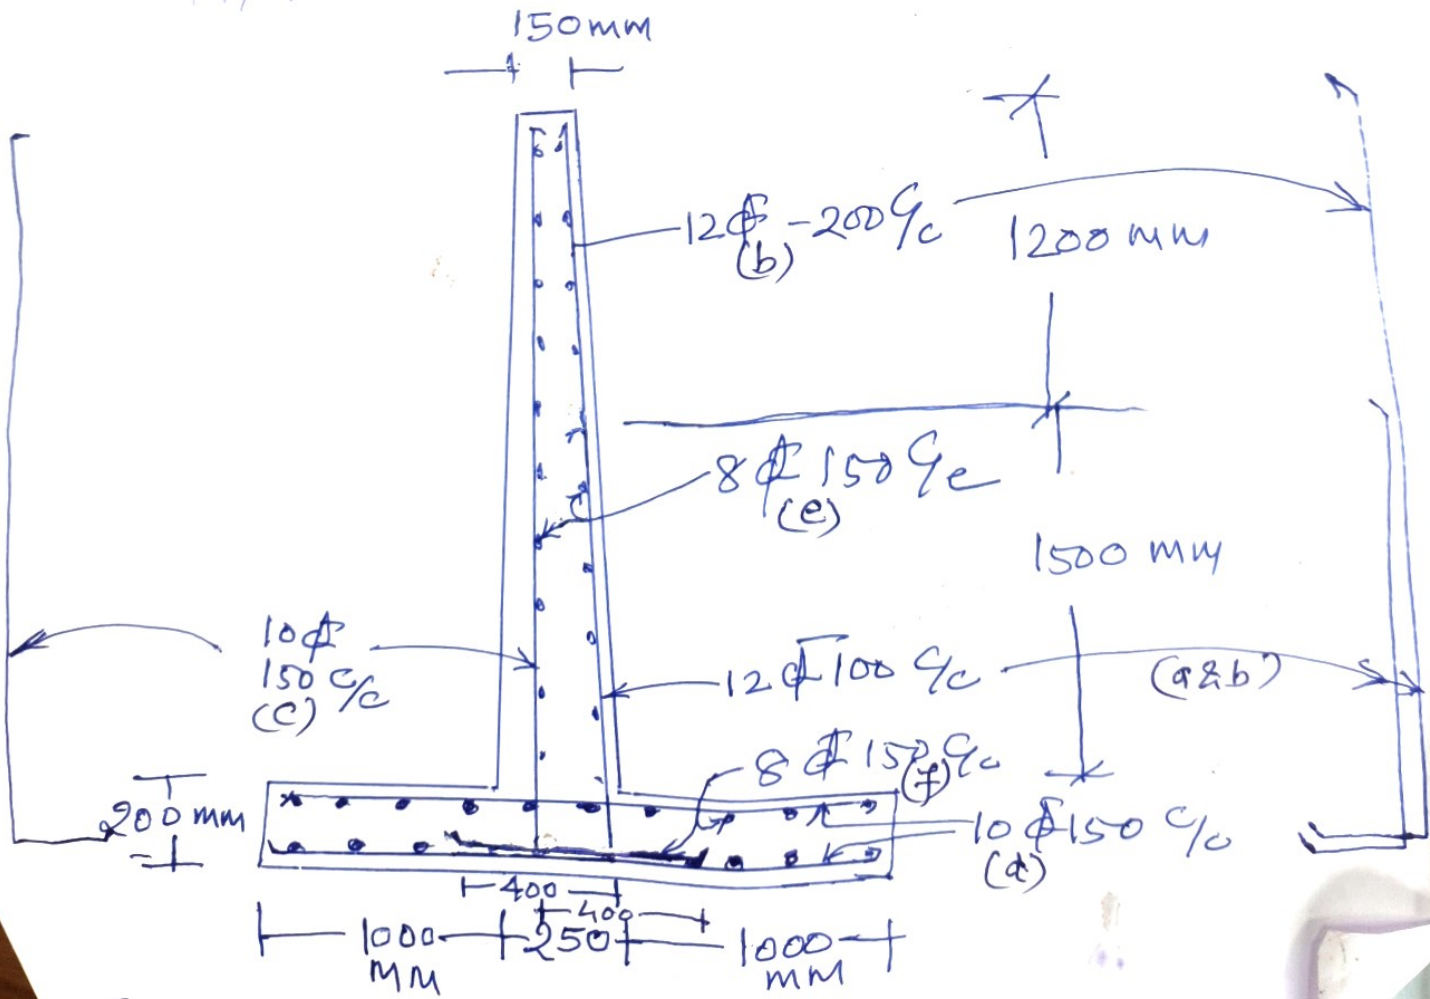 150mm
12⌀-200 c/c
(b)
1200 mm
8⌀150 c/c
(e)
1500 mm
10⌀
150 c/c
(c)
12⌀-100 c/c
(a&b)
8⌀150 c/c
(f)
200mm
10⌀150 c/c
(d)
400
400
1000
MM
250
1000
MM